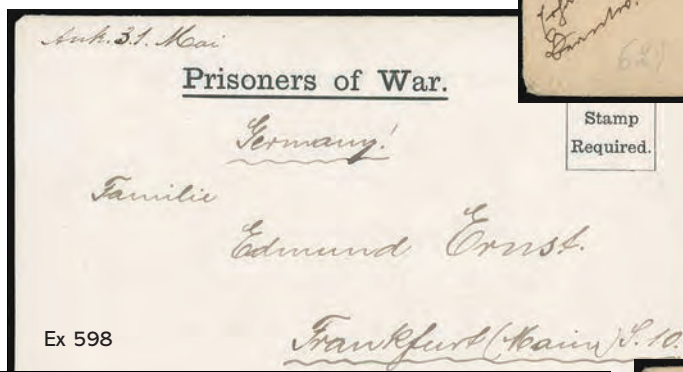 Ank. 31. Mai
Prisoners of War.
Germany!
Stamp
Required.
Familie
Edmund Ernst.
Frankfurt (Main) S. 10.
Ex 598